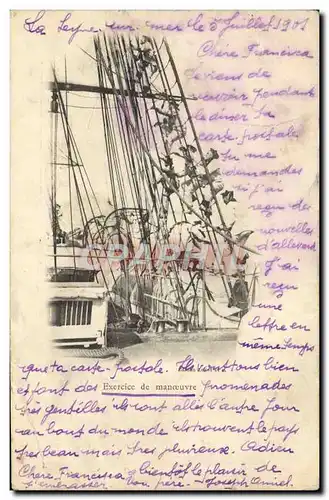 La Seyne sur mer le 5 Juillet 1901
Chère Francisca
je viens de
recevoir pendant
le diner ta
carte postale
Tu me
demandes
si j'ai
reçu des
nouvelles
d'allevard
J'ai
reçu
une
lettre en
même temps
que ta carte-postale. Ils vont tous bien
et font des promenades
Exercice de manœuvre
très gentilles ils sont allés l'autre jour
au bout du monde ils trouvent le pays
très beau mais très pluvieux. Adieu
Chère Francisca à bientôt le plaisir de
t'embrasser ton père Joseph
CPARAMA